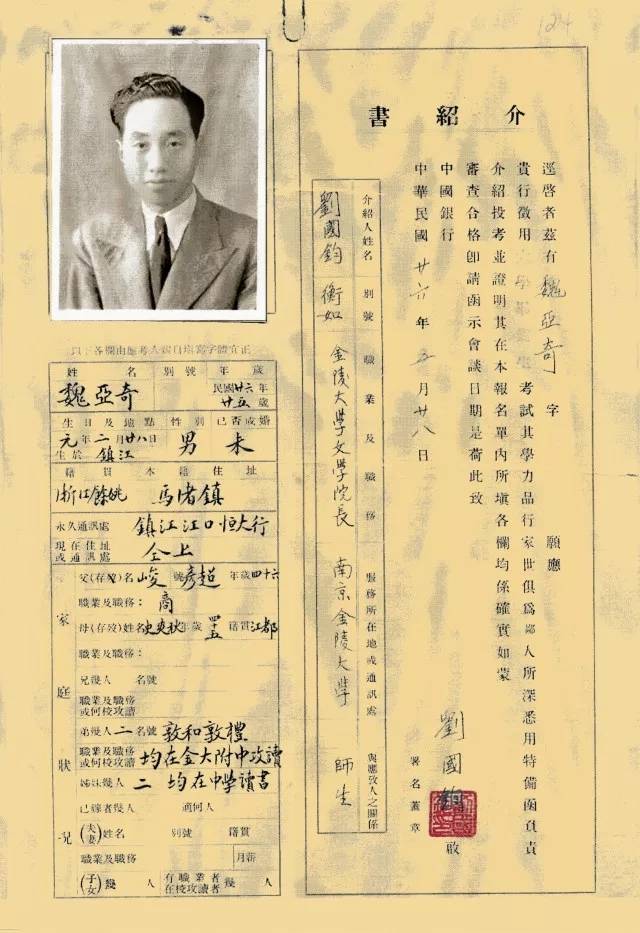 124
介紹書
逕啓者茲有魏亞奇 字 願應
貴行徵用 考試其學力品行家世俱爲鄙人所深悉用特備函負責
介紹投考並證明其在本報名單內所塡各欄均係確實如蒙
審查合格卽請函示會談日期是荷此致
中國銀行
中華民國廿六年五月廿八日
劉國鈞 啟
署名蓋章
介紹人姓名 劉國鈞
別號 衡如
職業及職務 金陵大學文學院長
服務所在地或通訊處 南京金陵大學
與應攷人之關係 師生
以下各欄由應考人親自塡寫字體宜正
姓名 別號 年歲
魏亞奇 民國廿六年廿五歲
生日及地點 性別 已否成婚
元年二月廿八日生於鎮江 男 未
籍貫 本籍住址
浙江餘姚 馬渚鎮
永久通訊處 鎮江江口恒大行
現在住址或通訊處 仝上
家庭狀況
父(存歿)名 峻 號彥超 年歲四十六
職業及職務：商
母(存歿)姓名史爽秋 年歲四十五 籍貫江都
職業及職務：
兄幾人 名號
職業及職務或何校攻讀
弟幾人二 名號 敦和敦禮
職業及職務或何校攻讀 均在金大附中攻讀
姊妹幾人 二 均在中學讀書
已嫁者幾人 適何人
(夫妻)姓名 別號 籍貫
職業及職務 月薪
(子女)幾人 有職業者在校攻讀者幾人